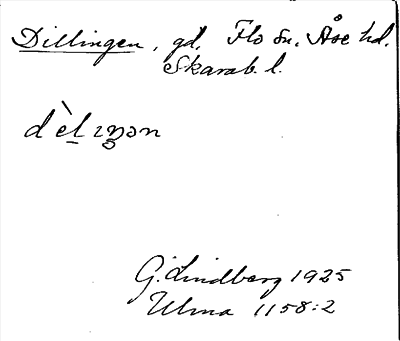 Dillingen, gd. Flo sn. Åse hd.
Skarab. l.
G. Lindberg 1925
Ulma 1158:2